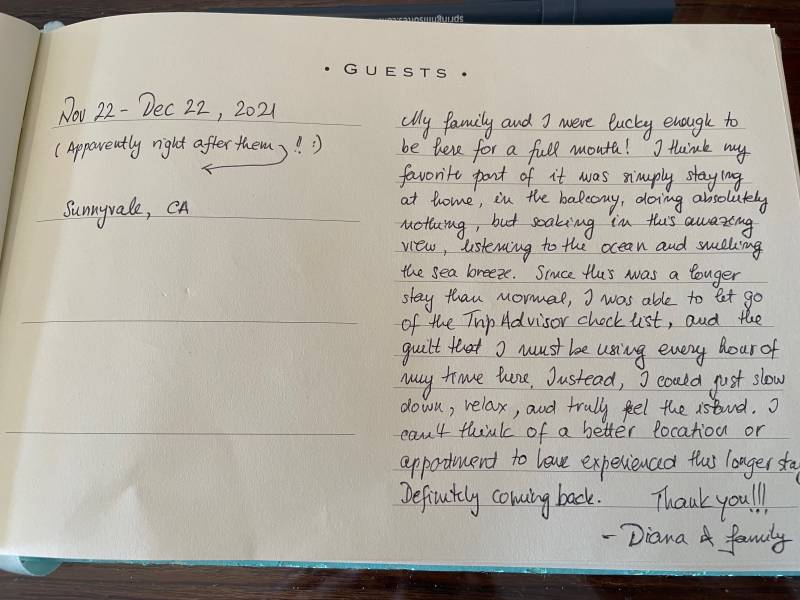 • GUESTS •
Nov 22 - Dec 22, 2021
(Apparently right after them !! :)
Sunnyvale, CA
My family and I were lucky enough to
be here for a full month! I think my
favorite part of it was simply staying
at home, in the balcony, doing absolutely
nothing, but soaking in this amazing
view, listening to the ocean and smelling
the sea breeze. Since this was a longer
stay than normal, I was able to let go
of the Trip Advisor check list, and the
guilt that I must be using every hour of
my time here. Instead, I could just slow
down, relax, and trully feel the island. I
can't think of a better location or
appartment to have experienced this longer stay
Definitely coming back. Thank you!!!
- Diana & family